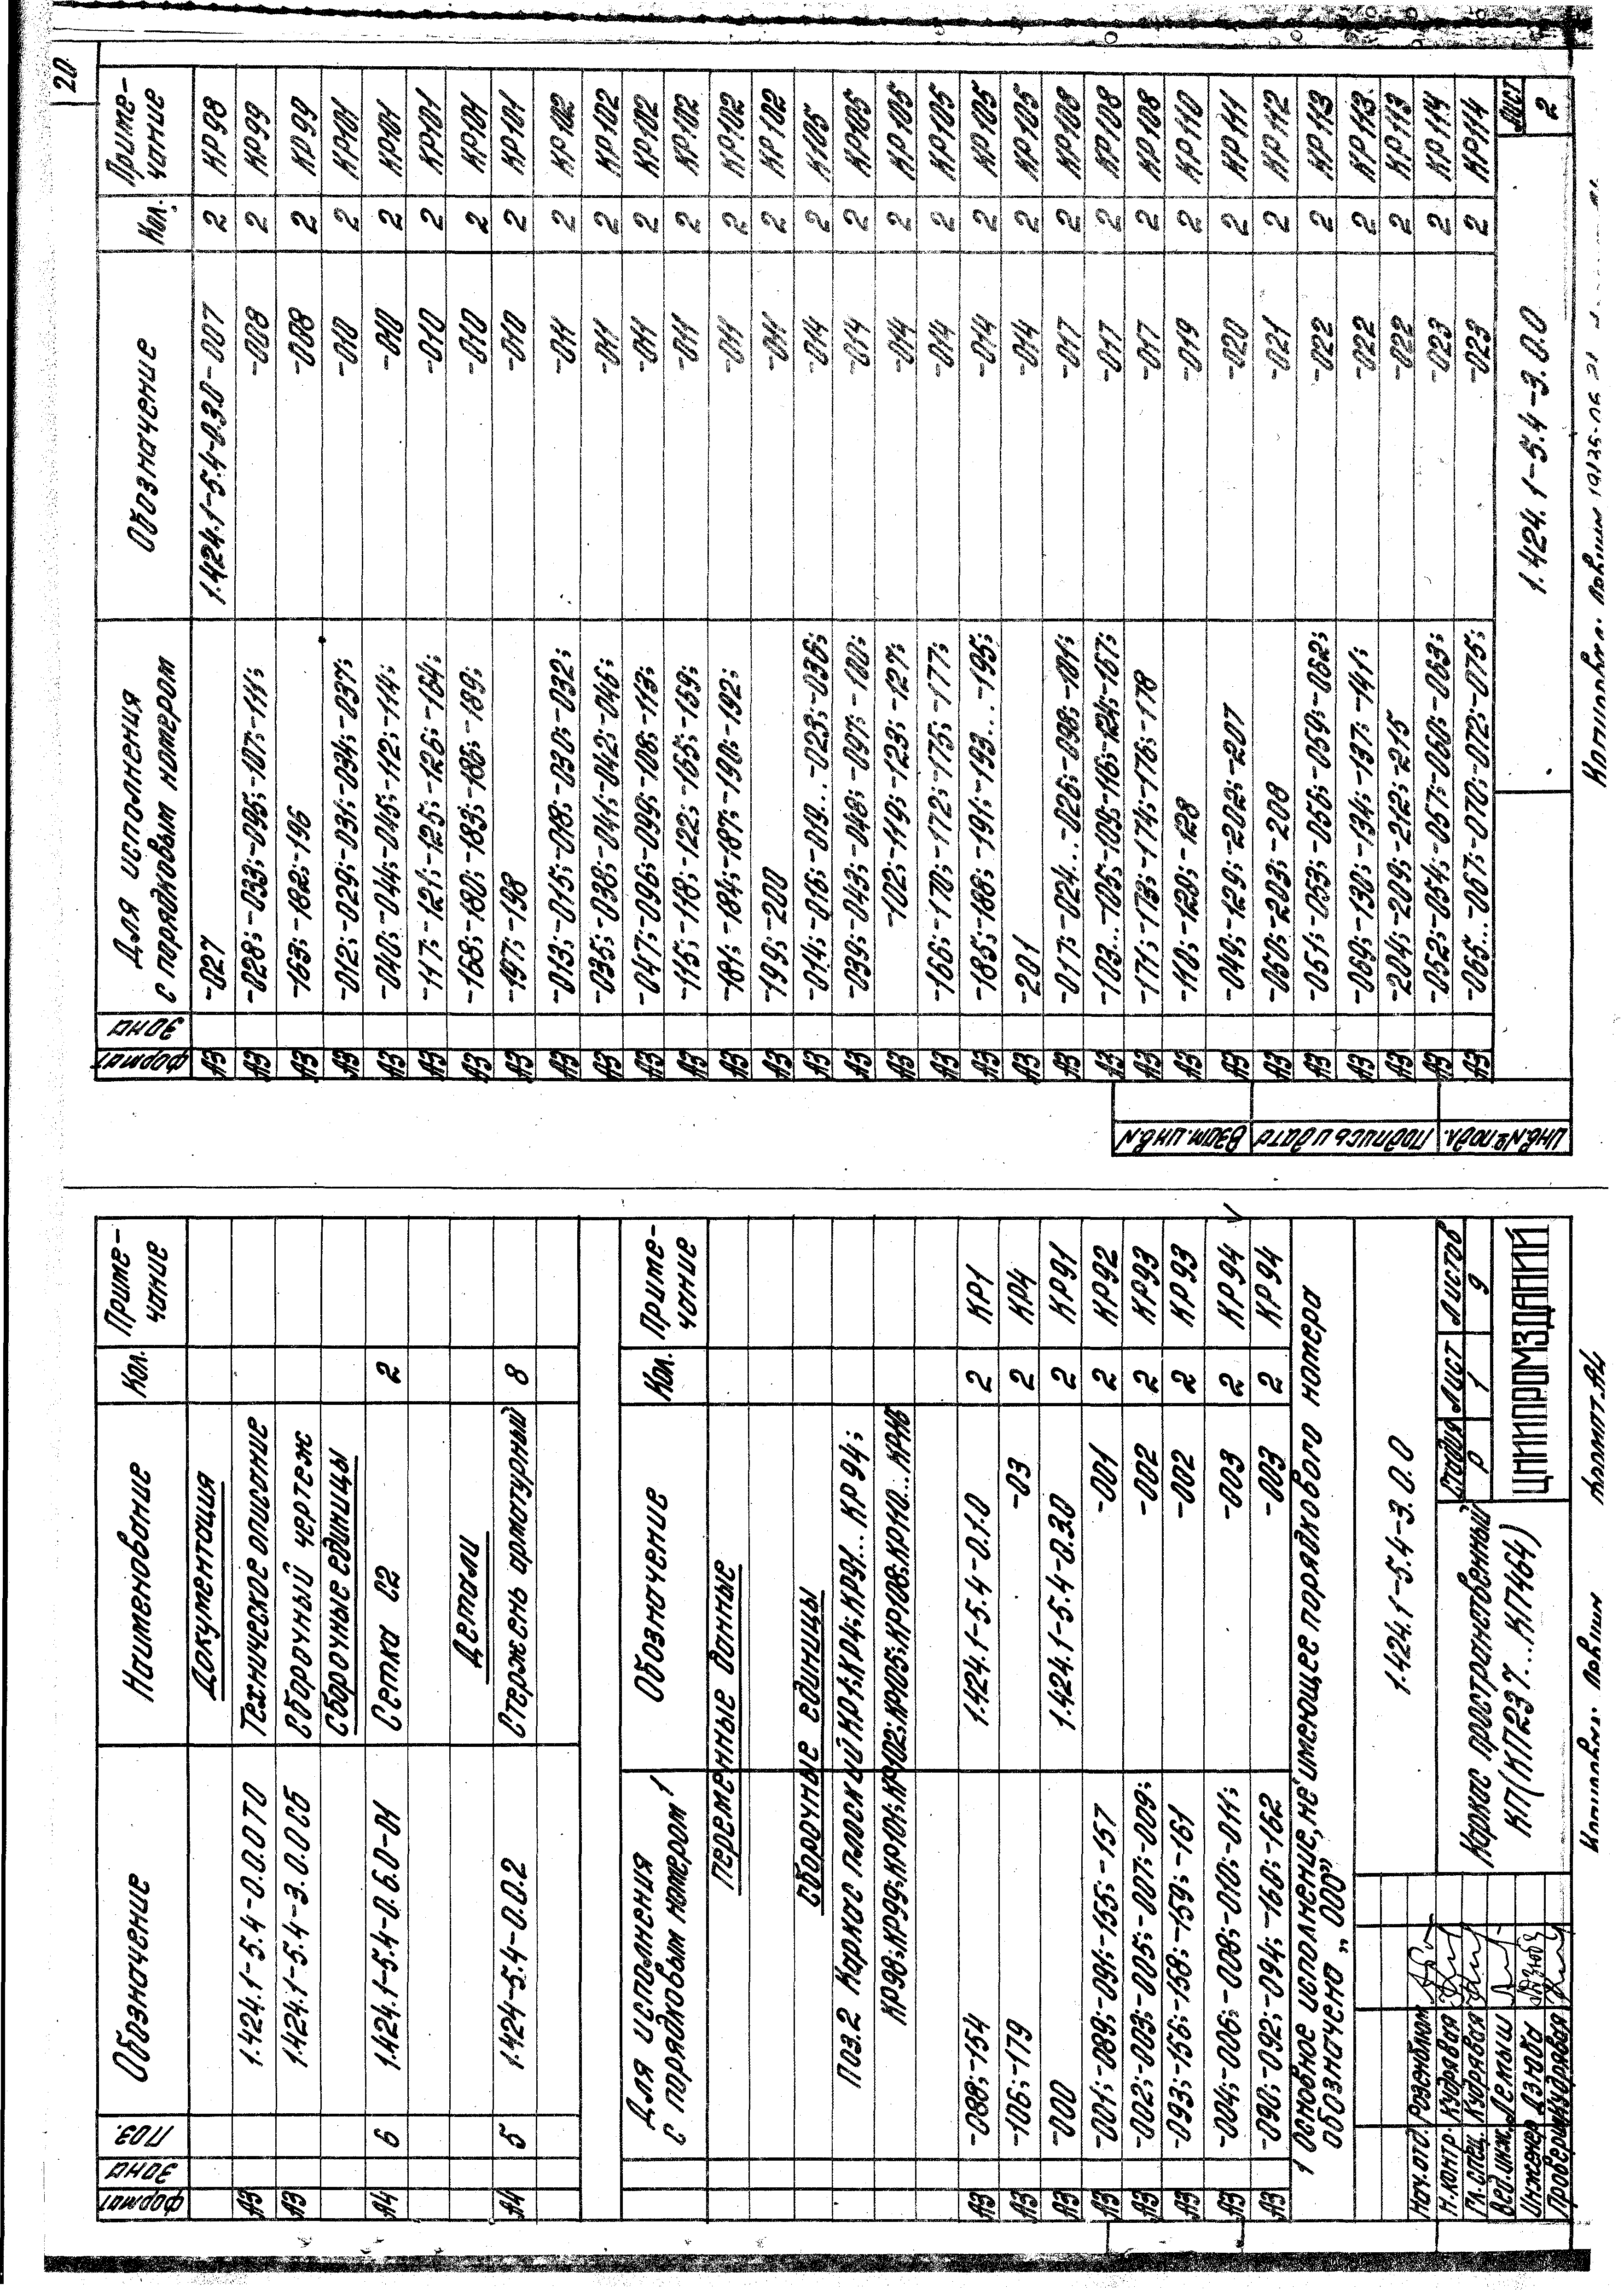 20
Формат Зона Поз. Обозначение Наименование Кол. Приме-
чание
Документация
А3 1.424.1-5.4-0.0.0 ТО Техническое описание
А3 1.424.1-5.4-3.0.0 СБ Сборочный чертеж
Сборочные единицы
А4 6 1.424.1-5.4-0.6.0-01 Сетка С2 2
Детали
А4 5 1.424-5.4-0.0.2 Стержень арматурный 8
Для исполнения
с порядковым номером¹ Обозначение Кол. Приме-
чание
Переменные данные
Сборочные единицы
Поз.2 Каркас плоский КР1;КР4;КР91...КР94;
КР98;КР99;КР101;КР102;КР105;КР108;КР110...КР115
А3 -088;-154 1.424.1-5.4-0.1.0 2 КР1
А3 -106;-179 -03 2 КР4
А3 -000 1.424.1-5.4-0.3.0 2 КР91
А3 -001;-089;-091;-155;-157 -001 2 КР92
А3 -002;-003;-005;-007;-009; -002 2 КР93
А3 -093;-156;-158;-159;-161 -002 2 КР93
А3 -004;-006;-008;-010;-011; -003 2 КР94
А3 -090;-092;-094;-160;-162 -003 2 КР94
1 Основное исполнение, не имеющее порядкового номера
обозначено „000”
1.424.1-5.4-3.0.0
Нач.отд. Розенблюм
Н.контр. Кудрявая
Гл.спец. Кудрявая
Вед.инж. Лекыш
Инженер Дзюба
Проверил Кудрявая
Каркас пространственный
КП(КП237...КП464)
Стадия Лист Листов
Р 1 9
ЦНИИПРОМЗДАНИЙ
Формат А4
Формат Зона Для исполнения
с порядковым номером Обозначение Кол. Приме-
чание
А3 -027 1.424.1-5.4-0.3.0-007 2 КР98
А3 -028;-033;-095;-107;-111; -008 2 КР99
А3 -163;-182;-196 -008 2 КР99
А3 -012;-029;-031;-034;-037; -010 2 КР101
А3 -040;-044;-045;-112;-114; -010 2 КР101
А3 -117;-121;-125;-126;-164; -010 2 КР101
А3 -168;-180;-183;-186;-189; -010 2 КР101
А3 -197;-198 -010 2 КР101
А3 -013;-015;-018;-030;-032; -011 2 КР102
А3 -035;-038;-041;-042;-046; -011 2 КР102
А3 -047;-096;-099;-108;-113; -011 2 КР102
А3 -115;-118;-122;-165;-169; -011 2 КР102
А3 -181;-184;-187;-190;-192; -011 2 КР102
А3 -199;-200 -011 2 КР102
А3 -014;-016;-019...-023;-036; -014 2 К105
А3 -039;-043;-048;-097;-100; -014 2 КР105
А3 -102;-119;-123;-127; -014 2 КР105
А3 -166;-170;-172;-175;-177; -014 2 КР105
А3 -185;-188;-191;-193...-195; -014 2 КР105
А3 -201 -014 2 КР105
А3 -017;-024...-026;-098;-101; -017 2 КР108
А3 -103...-105;-109;-116;-124;-167; -017 2 КР108
А3 -171;-173;-174;-176;-178 -017 2 КР108
А3 -110;-120;-128 -019 2 КР110
А3 -049;-129;-202;-207 -020 2 КР111
А3 -050;-203;-208 -021 2 КР112
А3 -051;-053;-056;-059;-062; -022 2 КР113
А3 -069;-130;-134;-137;-141; -022 2 КР113
А3 -204;-209;-212;-215 -022 2 КР113
А3 -052;-054;-057;-060;-063; -023 2 КР114
А3 -065...-067;-070;-072;-075; -023 2 КР114
Инв.№ подл. Подпись и дата Взам.инв.№
1.424.1-5.4-3.0.0
Лист
2